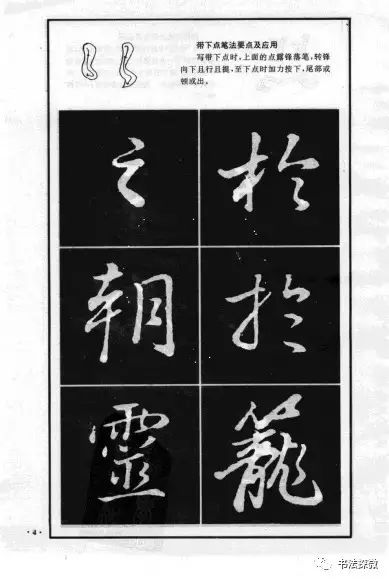 带下点笔法要点及应用
写带下点时，上面的点露锋落笔，转锋
向下且行且提，至下点时加力按下，尾部或
顿或出。
之 於
朝 於
靈 籠
·4·
书法探教